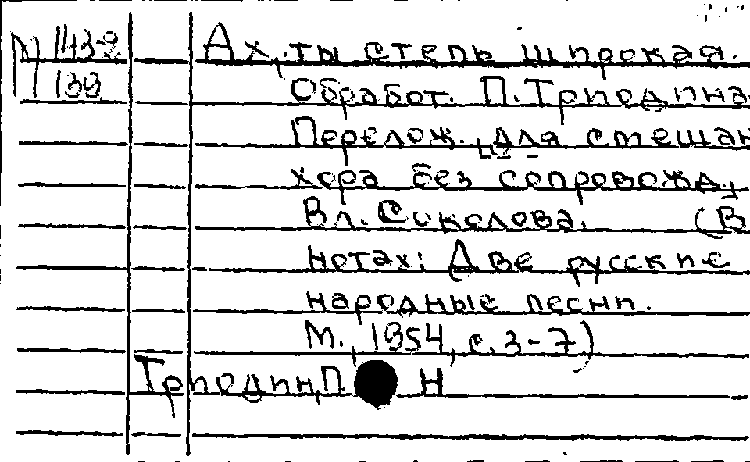 М 143-2
133
Ах, ты степь широкая.
Обработ. П. Триодина
Перелож. для смешан
хора без сопровожд.
Вл. Соколова. (В
нотах: Две русские
народные песни.
М., 1954, с. 3-7)
Триодин, П. Н